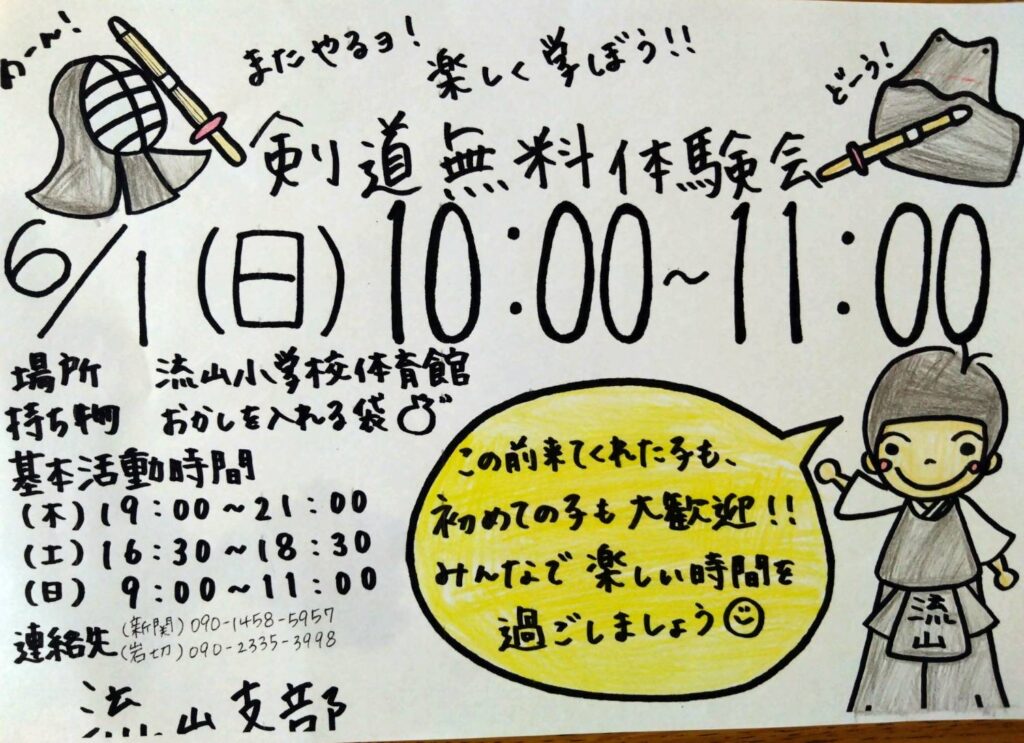 めーん!
またやるヨ!
楽しく学ぼう!!
どーう!
剣道無料体験会
6/1(日)10:00~11:00
場所 流山小学校体育館
持ち物 おかしを入れる袋
基本活動時間
(木)19:00~21:00
(土)16:30~18:30
(日)9:00~11:00
連絡先(新関)090-1458-5957
(岩切)090-2335-3998
流山支部
この前来てくれた子も、
初めての子も大歓迎!!
みんなで楽しい時間を
過ごしましょう
流山